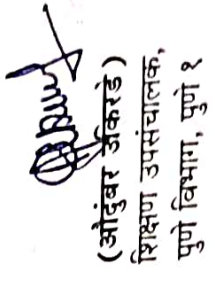 (औदुंबर उकिरडे)
शिक्षण उपसंचालक,
पुणे विभाग, पुणे १